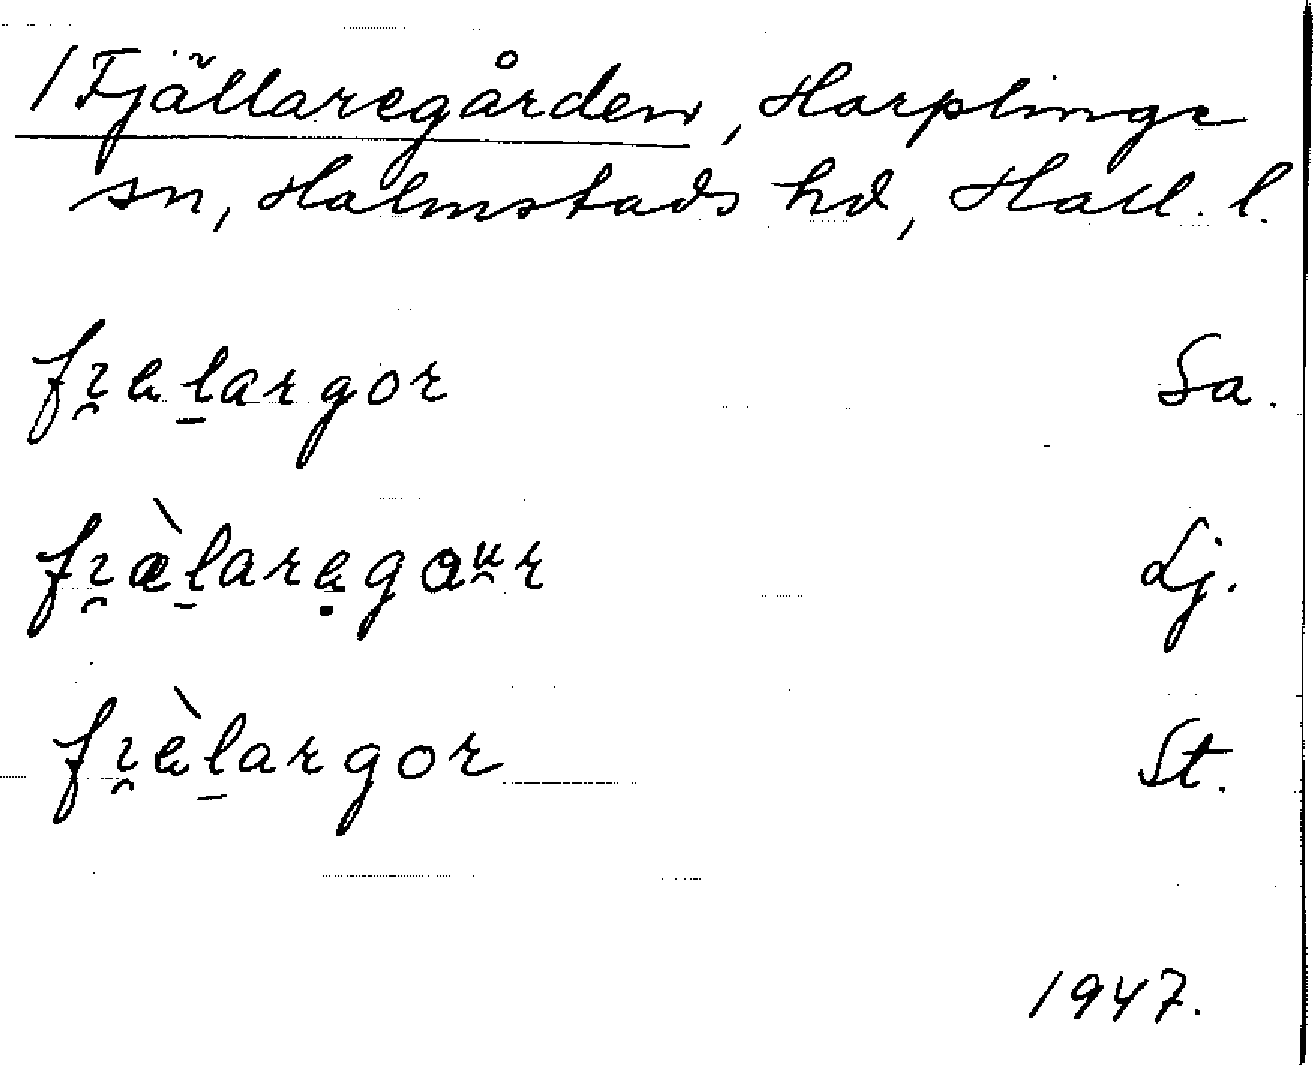 /Fjällaregården, Harplinge
sn, Halmstads hd, Hall. l.
fɿ̯al̠argor Sa.
fɿ̯æ̀l̠arạgaᵘ̯r Lj.
fɿ̯àl̠argor St.
1947.